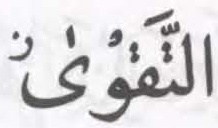 التَّقْوٰىۚ